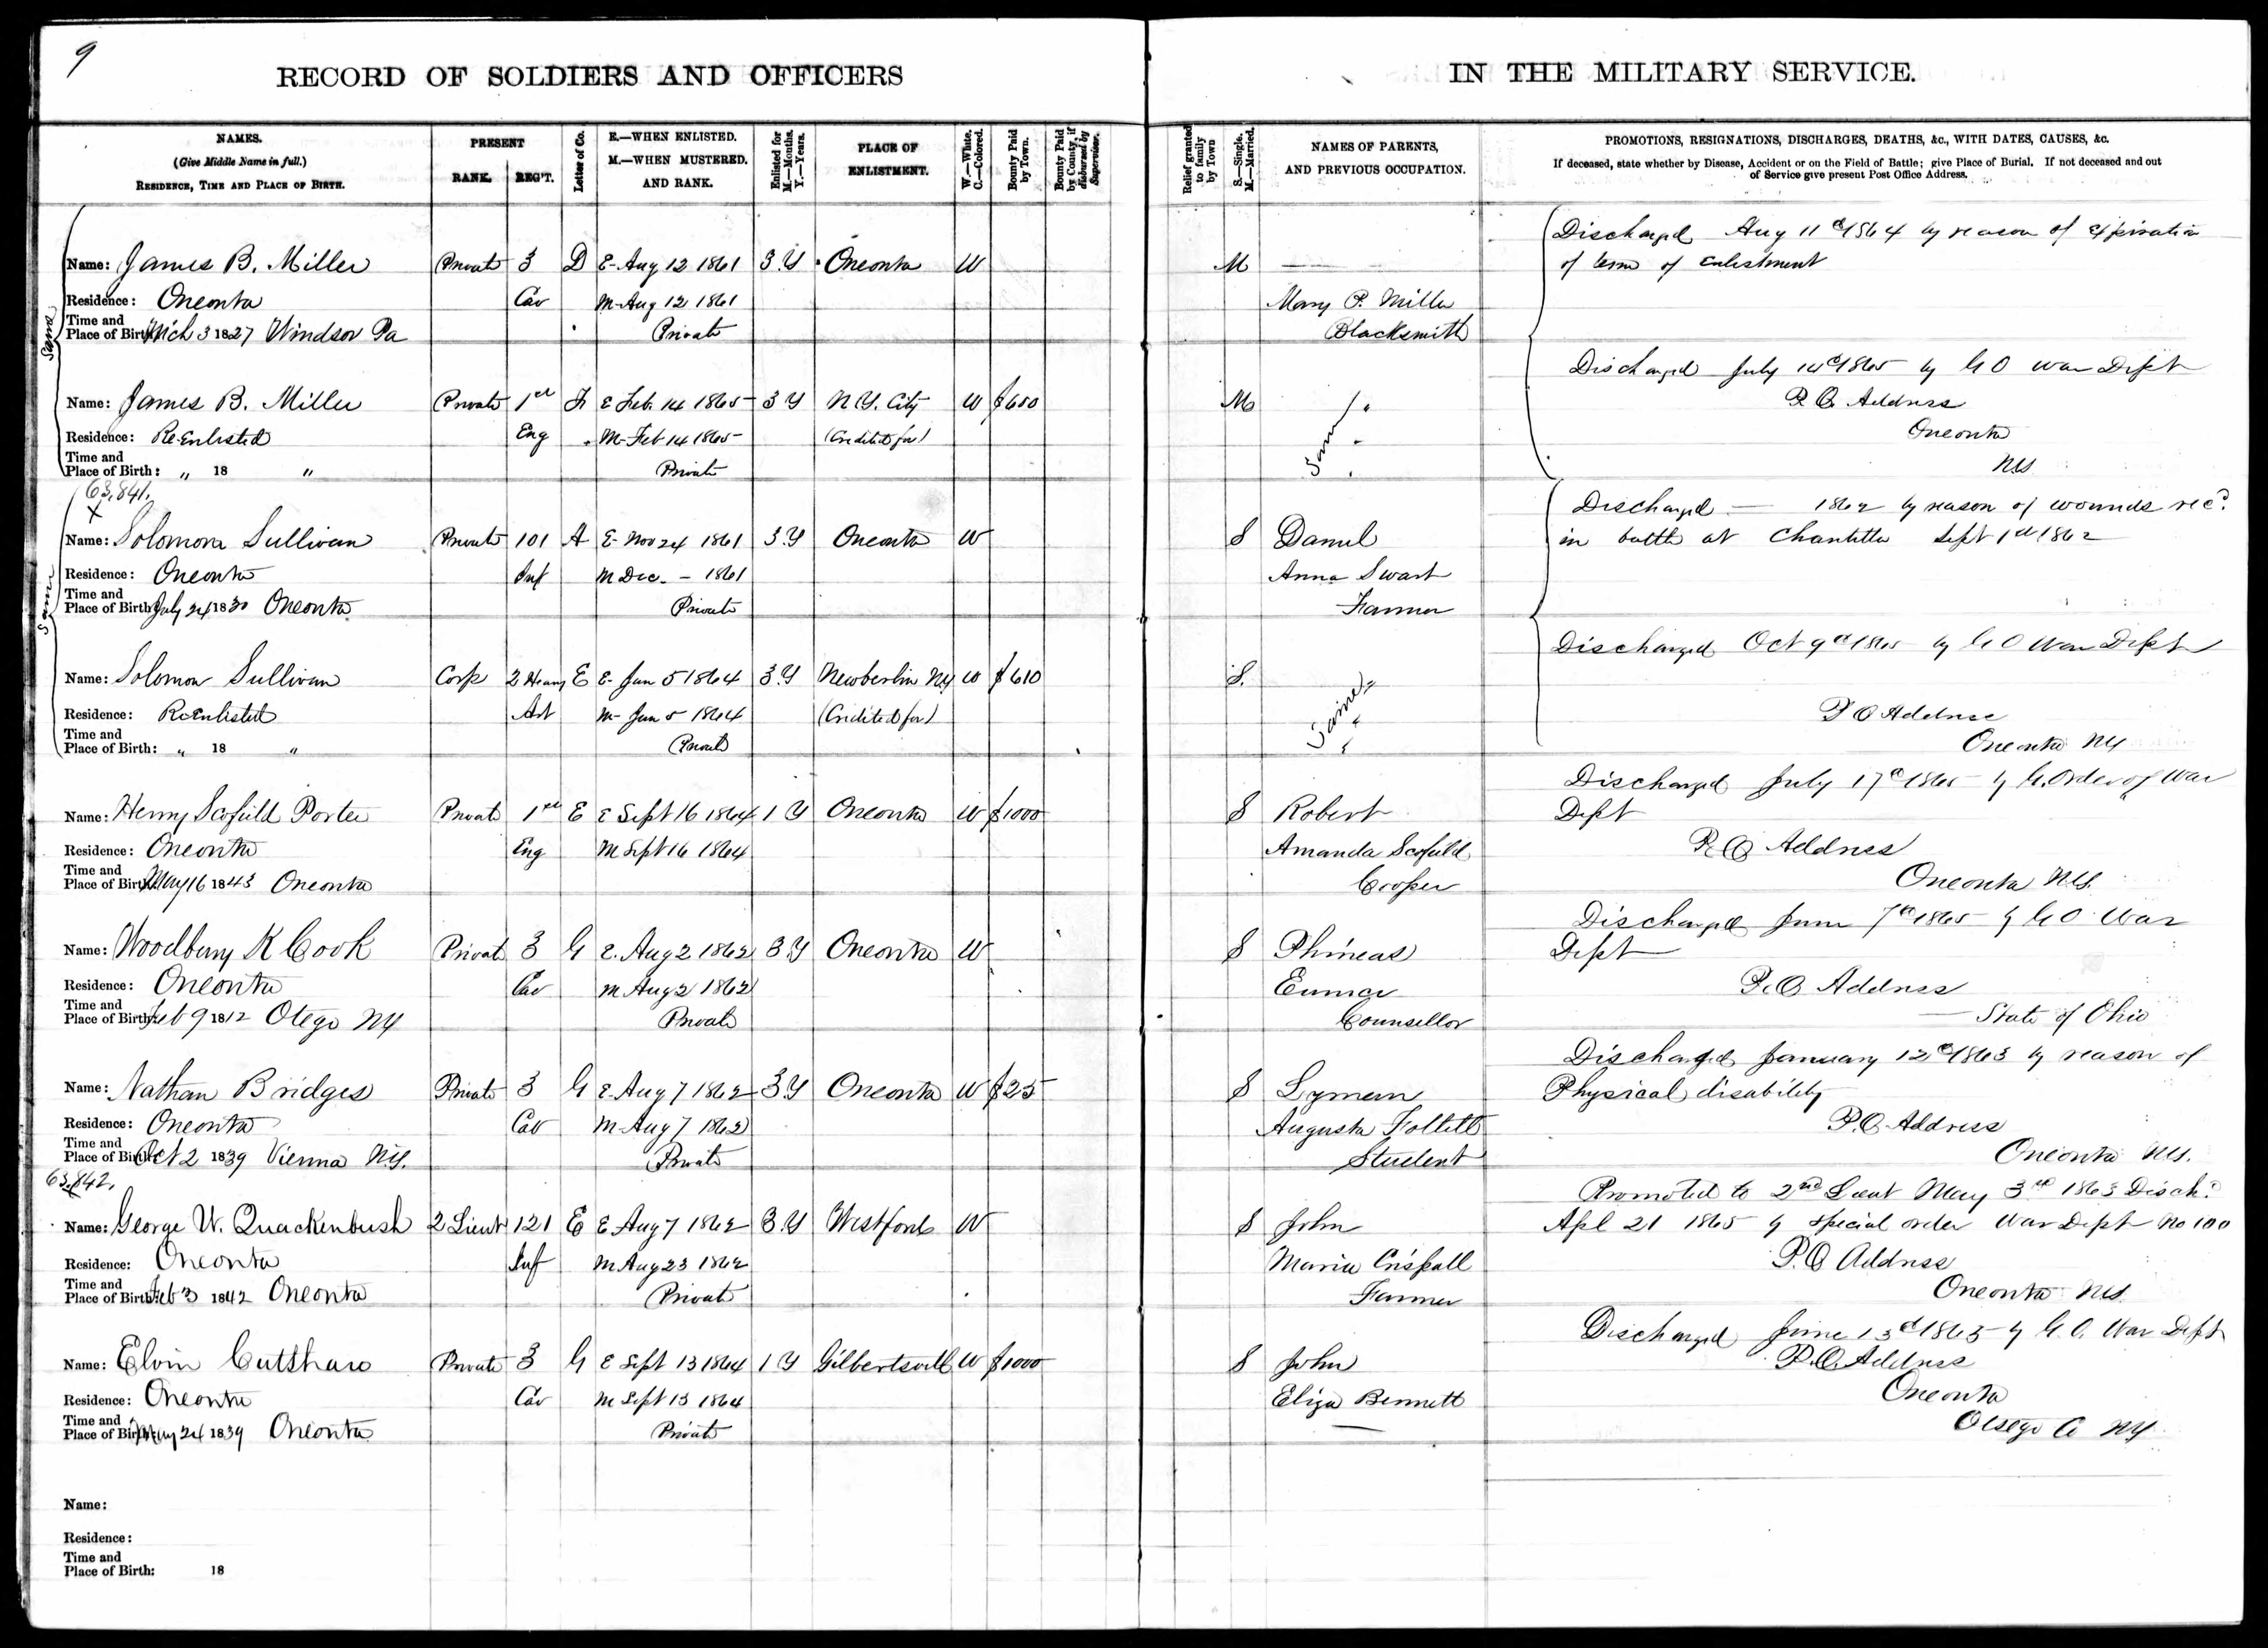 9
RECORD OF SOLDIERS AND OFFICERS IN THE MILITARY SERVICE.
NAMES.
(Give Middle Name in full.)
RESIDENCE, TIME AND PLACE OF BIRTH.
PRESENT
RANK. REG'T.
Letter of Co.
E.—WHEN ENLISTED.
M.—WHEN MUSTERED.
AND RANK.
Enlisted for
M.—Months.
Y.—Years.
PLACE OF
ENLISTMENT.
W.—White.
C.—Colored.
Bounty Paid
by Town.
Bounty Paid
by County, if
disbursed by
Supervisor.
Relief granted
to family
by Town
S.—Single.
M.—Married.
NAMES OF PARENTS,
AND PREVIOUS OCCUPATION.
PROMOTIONS, RESIGNATIONS, DISCHARGES, DEATHS, &c., WITH DATES, CAUSES, &c.
If deceased, state whether by Disease, Accident or on the Field of Battle; give Place of Burial. If not deceased and out
of Service give present Post Office Address.
Same
Discharged Aug 11th 1864 by reason of Expiration
Name: James B. Miller Private 3 D E- Aug 12 1861 3 Y Oneonta W M — of term of Enlistment
Residence: Oneonta Cav M- Aug 12 1861 Mary P. Miller
Time and
Place of Birth: Mch 3 1827 Windsor Pa Private Blacksmith
Discharged July 14th 1865 by G O War Dept
Name: James B. Miller Private 1st F E Feb. 14 1865 3 Y N Y. City W $600 M Same " P. O. Address
Residence: Re-Enlisted Eng M- Feb 14 1865 (Credited for) " Oneonta
Time and
Place of Birth: " 18 " Private " N.Y.
63,841.
X
Same
Discharged — 1862 by reason of wounds rec'd
Name: Solomon Sullivan Private 101 A E- Nov 24 1861 3 Y Oneonta W S Daniel in battle at Chantilla Sept 1st 1862
Residence: Oneonta Inf M Dec. - 1861 Anna Swart
Time and
Place of Birth: July 24 1830 Oneonta Private Farmer
Discharged Oct 9th 1865 by G O War Dept
Name: Solomon Sullivan Corp 2 Heavy E E- Jan 5 1864 3 Y Newberlin NY W $610 S. Same "
Residence: ReEnlisted Art M- Jan 5 1864 (Credited for) " P O Address
Time and
Place of Birth: " 18 " Private " Oneonta NY
Discharged July 17th 1865 by G. Order of War
Name: Henry Scofield Porter Private 1st E E Sept 16 1864 1 Y Oneonta W $1000 S Robert Dept
Residence: Oneonta Eng M Sept 16 1864 Amanda Scofield P. O Address
Time and
Place of Birth: May 16 1843 Oneonta Cooper Oneonta N.Y.
Discharged June 7th 1865 by G O War
Name: Woodbury K Cook Private 3 G E. Aug 2 1862 3 Y Oneonta W S Phineas Dept
Residence: Oneonta Cav M Aug 2 1862 Eunice P. O Address
Time and
Place of Birth: Feb 9 1812 Otego NY Private Counsellor — State of Ohio
Discharged January 12th 1863 by reason of
Name: Nathan Bridges Private 3 G E. Aug 7 1862 3 Y Oneonta W $25 S Lyman Physical disability
Residence: Oneonta Cav M- Aug 7 1862 Augusta Follett P. O. Address
Time and
Place of Birth: Oct 2 1839 Vienna N.Y. Private Student Oneonta N.Y.
63,842.
Promoted to 2nd Lieut May 3rd 1863 Disch'd
Name: George W. Quackenbush 2 Lieut 121 E E. Aug 7 1862 3 Y Westford W S John Apl 21 1865 by special order War Dept No 100
Residence: Oneonta Inf M Aug 23 1862 Maria Crispall P. O Address
Time and
Place of Birth: Feb 3 1842 Oneonta Private Farmer Oneonta N.Y.
Discharged June 13th 1865 by G. O. War Dept
Name: Elvin Cutshaw Private 3 G E Sept 13 1864 1 Y Gilbertsvill W $1000 S John P. O. Address
Residence: Oneonta Cav M Sept 13 1864 Eliza Bennett Oneonta
Time and
Place of Birth: May 24 1839 Oneonta Private — Otsego Co NY
Name:
Residence:
Time and
Place of Birth: 18